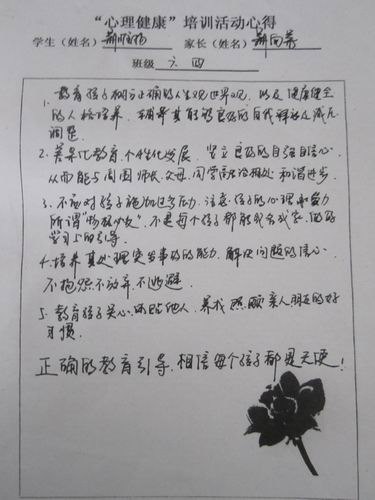 “心理健康”培训活动心得
学生（姓名） 家长（姓名）
班级 六 四
1. 教育孩子树立正确的人生观世界观，以及健康健全
的人格培养，辅导其能够良好的自我释放及减压
调整。
2. 差异化教育，个性化发展，竖立良好的自强自信心，
从而能与周围师长、父母、同学融洽相处和谐进步。
3. 不应对孩子施加过多压力，注意孩子的心理承受力
所谓“物极必反”，不是每个孩子都能成名成家，做好
学习上的引导。
4. 培养其处理突发事故的能力，解决问题的信心，
不抱怨不放弃不逃避。
5. 教育孩子关心、体贴他人，养成照顾亲人朋友的好
习惯。
正确的教育引导，相信每个孩子都是天使！